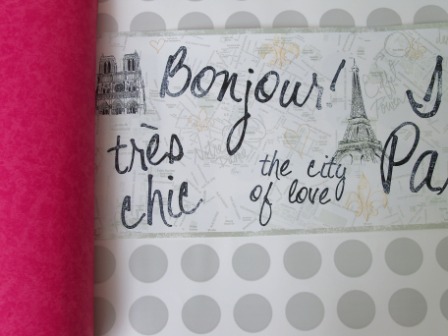 Bonjour!
très
chic
the city
of love